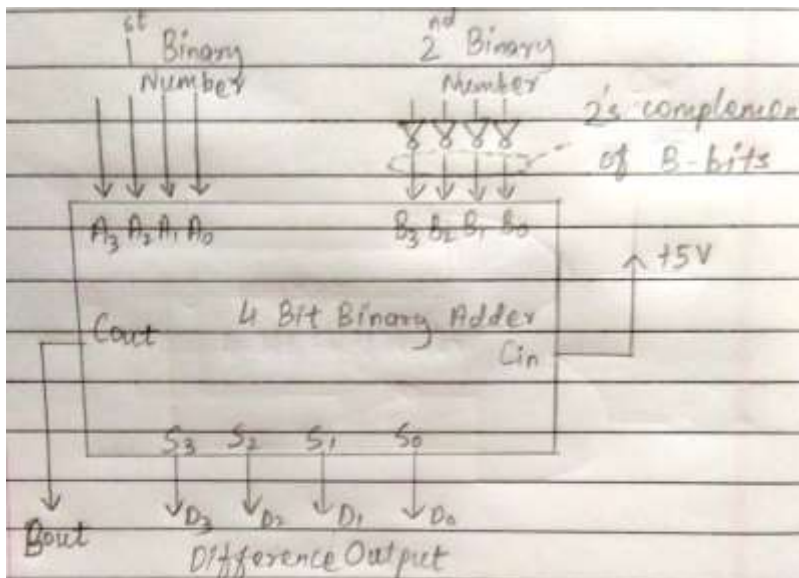 1st Binary
Number
2nd Binary
Number
2's complemen
of B-bits
A3 A2 A1 A0
B3 B2 B1 B0
+5V
4 Bit Binary Adder
Cout
Cin
S3 S2 S1 S0
D3 D2 D1 D0
Bout
Difference Output